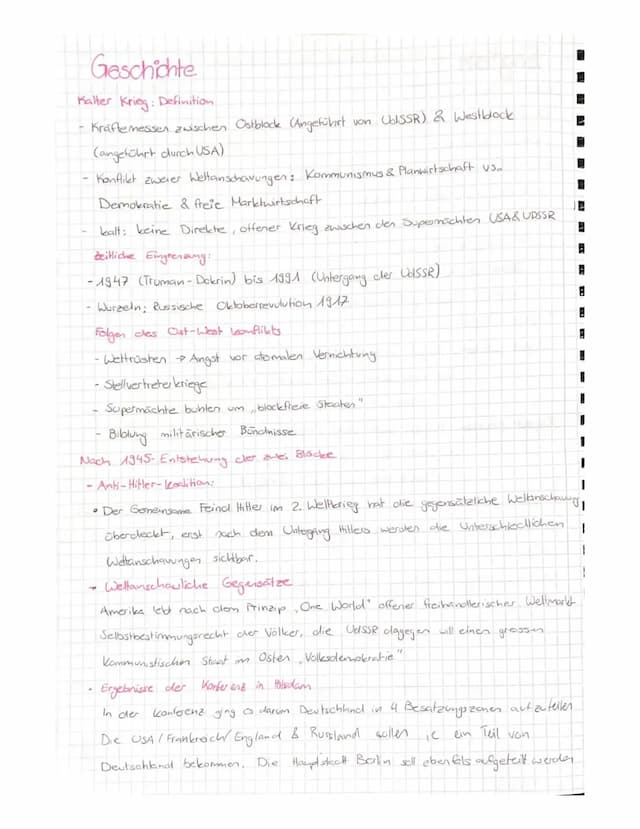 Geschichte
Kalter Krieg: Definition
- Kräftemessen zwischen Ostblock (Angeführt von UdSSR) & Westblock
(angeführt durch USA)
- Konflikt zweier Weltanschauungen: Kommunismus & Planwirtschaft vs.
Demokratie & freie Marktwirtschaft
- kalt: keine Direkte, offener Krieg zwischen den Supermächten USA & UDSSR
Zeitliche Eingrenzung:
- 1947 (Truman-Dokrin) bis 1991 (Untergang der UdSSR)
- Wurzeln: Russische Oktoberrevolution 1917
Folgen des Ost-West Konflikts
- Wettrüsten → Angst vor atomalen Vernichtung
- Stellvertreterkriege
- Supermächte buhlen um „blockfreie Staaten"
- Bildung militärischer Bündnisse
Nach 1945- Entstehung der zwei Blöcke
- Anti-Hitler-Koalition:
• Der Gemeinsame Feind Hitler im 2. Weltkrieg hat die gegensätzliche Weltanschauung
überdeckt, erst nach dem Untergang Hitlers werden die Unterschiedlichen
Weltanschauungen sichtbar.
→ Weltanschauliche Gegensätze
Amerika lebt nach dem Prinzip „One World" offener freihändlerischer Weltmarkt
Selbstbestimmungsrecht der Völker, die UdSSR dagegen will einen grossen
Kommunistischen Staat im Osten „Volksdemokratie"
• Ergebnisse der Konferenz in Potsdam
In der Konferenz ging es darum Deutschland in 4 Besatzungszonen aufzuteilen
Die USA/Frankreich/England & Russland sollen je ein Teil von
Deutschland bekommen. Die Hauptstadt Berlin soll ebenfals aufgeteilt werden